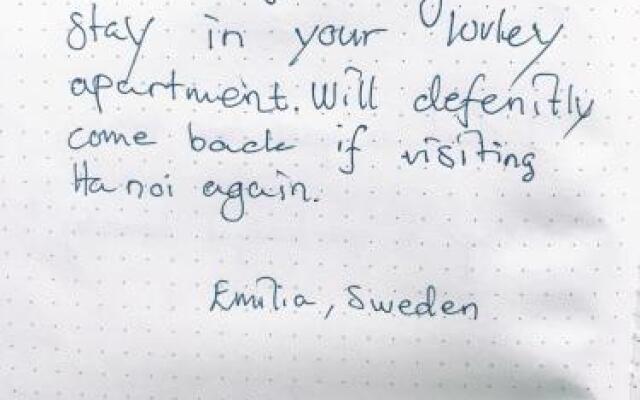 stay in your lovley
apartment. Will defenitly
come back if visiting
Hanoi again.
Emilia, Sweden